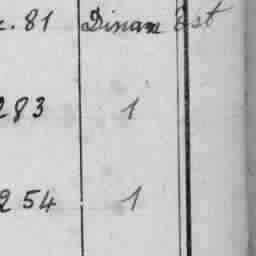 . 81 Dinan Est
283 1
254 1